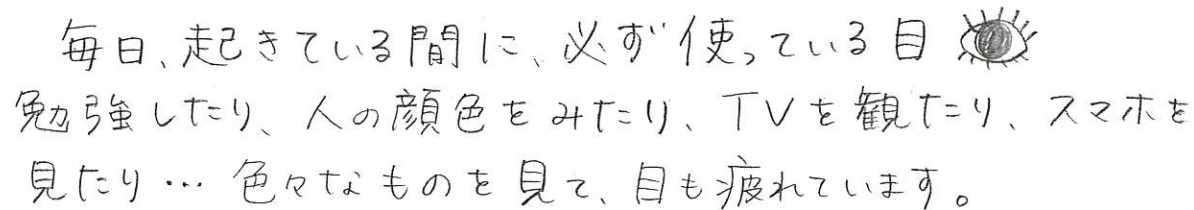 毎日、起きている間に、必ず使っている目
勉強したり、人の顔色をみたり、TVを観たり、スマホを
見たり… 色々なものを見て、目も疲れています。